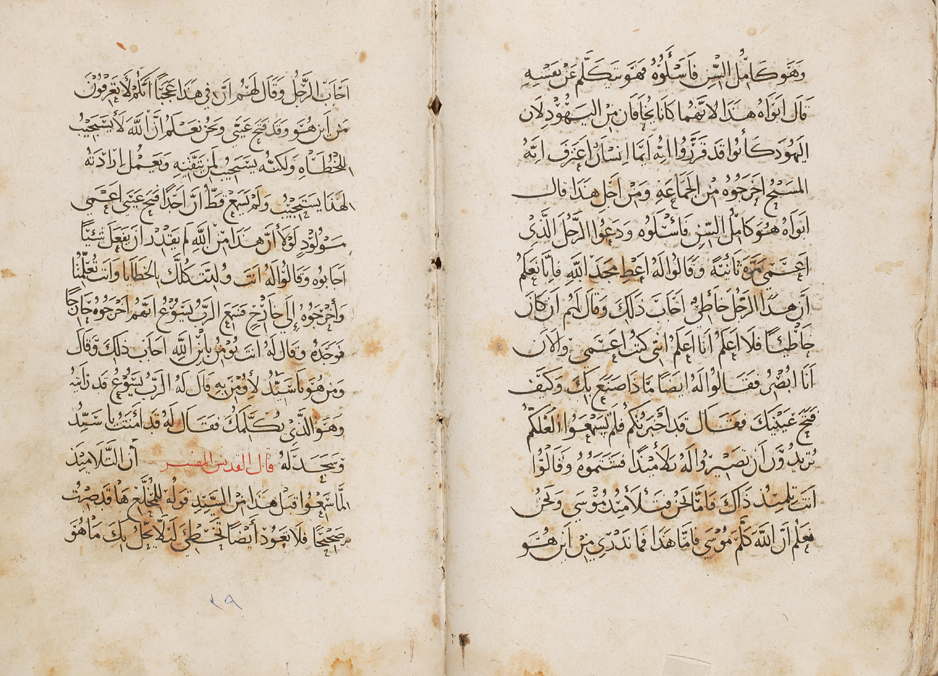 وهو كامل السن فاسلوه فهو يتكلم عن نفسه
قال ابواه هذا لانهما كانا يخافان من اليهود لان
اليهود كانوا قد قرروا انه ايما انسان اعترف انه
المسيح اخرجوه من الجماعة ومن اجل هذا قال
ابواه هو كامل السن فاسئلوه ودعوا الرجل الذي
اعمى مرة ثانية وقالوا له اعط مجد الله فانا نعلم
ان هذا الرجل خاطئ اجاب ذلك وقال لهم ان كان
خاطئا فلا اعلم انا اعلم انني كنت اعمى والان
انا ابصر فقالوا له ايضا ماذا صنع بك وكيف
فتح عينيك فقال قد اخبرتكم فلم تسمعوا العلكم
تريدون ان تصيروا له تلاميذا فشتموه وقالوا
انت تلميذ ذاك فاما نحن فتلاميذ موسى ونحن
نعلم ان الله كلم موسى فاما هذا فما ندري من اين هو
اجاب الرجل وقال لهم ان في هذا عجبا انكم لا تعرفون
من اين هو وقد فتح عيني ونحن نعلم ان الله لا يستجيب
للخطاه ولكنه يستجيب لمن يتقيه ويعمل ارادته
لهذا يستجيب ولم يسمع قط ان احدا فتح عيني اعمى
مولود لولا ان هذا من الله لم يقدر ان يفعل شيئا
اجابوه وقالوا له انت ولدت كلك بالخطايا وانت تعلمنا
واخرجوه الى خارج فسمع الرب يسوع انهم اخرجوه خارجا
فوجده وقال له انت تومن بابن الله اجاب ذلك وقال
ومن هو يا سيد لاومن به قال له الرب يسوع قد رايته
وهو الذي يكلمك فقال له قد امنت يا سيد
وسجد له قال القديس المفسر ان التلاميذ
لما سمعوا قبل هذا من السيد قوله للمخلع ها قد صرت
صحيحا فلا تعود ايضا تخطئ ليلا يحل بك ما هو
٢٩